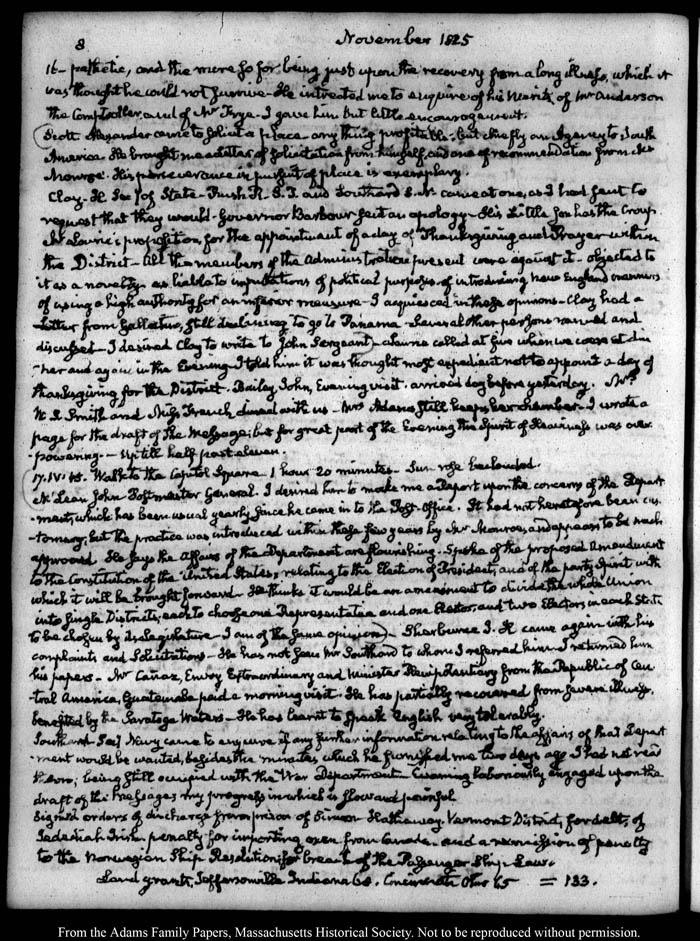 8 November 1825
It — pathetic, and the more so for being just upon the recovery from a long illness, which it
was thought he could not survive — He intreated me to enquire of his Merits of Mr Anderson
the Comptroller, and of Mr Frye — I gave him but little encouragement.
Scott Alexander came to solicit a place any thing profitable; but chiefly an Agency to South
America. He brought me a letter of solicitation from himself, and one of recommendation from Mr
Monroe. His perseverance in pursuit of place is exemplary.
Clay. H. Secy of State — Rush R. S. T. and Southard S. N. came at one, as I had sent to
request that they would — Governor Barbour sent an apology — His Little Son has the Croup.
Mr Lowrie's proposition, for the appointment of a day of Thanksgiving and Prayer within
the District — All the members of the Administration present were against it — objected to
it as a novelty — as liable to imputations of political purposes — of introducing New England manners
of using a high authority for an inferior measure — I acquiesced in these opinions — Clay had a
letter from Gallatin, still declining to go to Panama — Several other persons named and
discussed — I desired Clay to write to John Sergeant) — Lowrie called at five when we were at din
ner and again in the Evening. I told him it was thought most expedient not to appoint a day of
thanksgiving for the District. Bailey John, Evening visit — arrived day before yesterday. Mrs
W. S. Smith and Miss French dined with us — Mrs Adams still keeps her chamber — I wrote a
page for the draft of the Message; but for great part of the Evening the Spirit of Heaviness was over
powering. — Up till half past eleven.
17. IV: 45. Walk to the Capitol Square 1 hour 20 minutes — Sun rose beclouded.
McLean John Postmaster General. I desired him to make me a Report upon the concerns of the Depart
ment, which has been usual yearly since he came in to the Post-Office. It had not heretofore been cus
tomary; but the practice was introduced within these few years by Mr Monroe, and appears to be much
approved. He says the affairs of the Department are flourishing. Spoke of the proposed Amendment
to the Constitution of the United States, relating to the Election of President, and of the party Spirit with
which it will be brought forward. He thinks it would be an amendment to divide the whole Union
into single Districts, each to choose one Representative and one Elector, and two Electors in each State
to be chosen by its Legislature — I am of the same opinion) — Sherburne J. H. came again with his
complaints and Solicitations — He has not seen Mr Southard to whom I referred him — I returned him
his papers — Mr Cañaz, Envoy Extraordinary and Minister Plenipotentiary from the Republic of Cen
tral America, Guatemala paid a morning visit. He has partially recovered from severe illness,
benefited by the Saratoga Waters — He has learnt to speak English very tolerably.
Southard Secy Navy came to enquire if any further information relating to the affairs of that Depart
ment would be wanted, besides the minutes which he furnished me two days ago. I had not read
them; being still occupied with the War Department — Evening laboriously engaged upon the
draft of the Message; my progress in which is slow and painful.
Signed orders of discharge from prison of Simeon Hathaway. Vermont District, for debt; of
Jedediah Irish penalty for importing oxen from Canada — and a remission of penalty
to the Norwegian Ship Restoration for breach of the Passenger Ship-Law.
Land grants, Jeffersonville Indiana 68. Cincinnati Ohio 65 = 133.
From the Adams Family Papers, Massachusetts Historical Society. Not to be reproduced without permission.